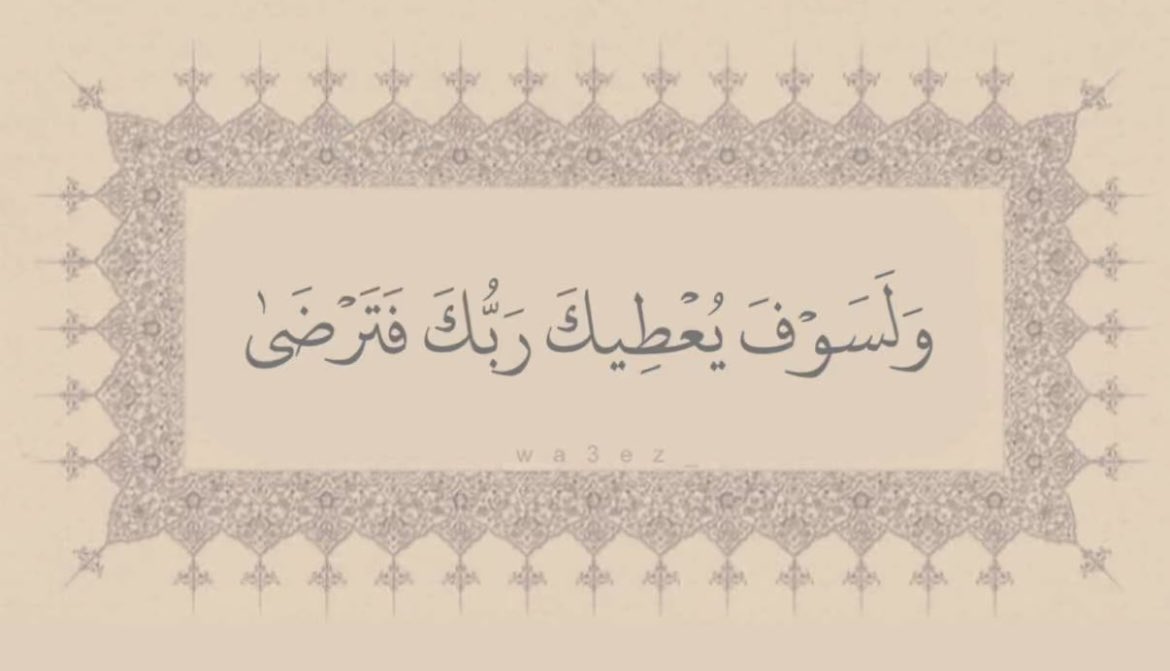 وَلَسَوْفَ يُعْطِيكَ رَبُّكَ فَتَرْضَىٰ
wa3ez_